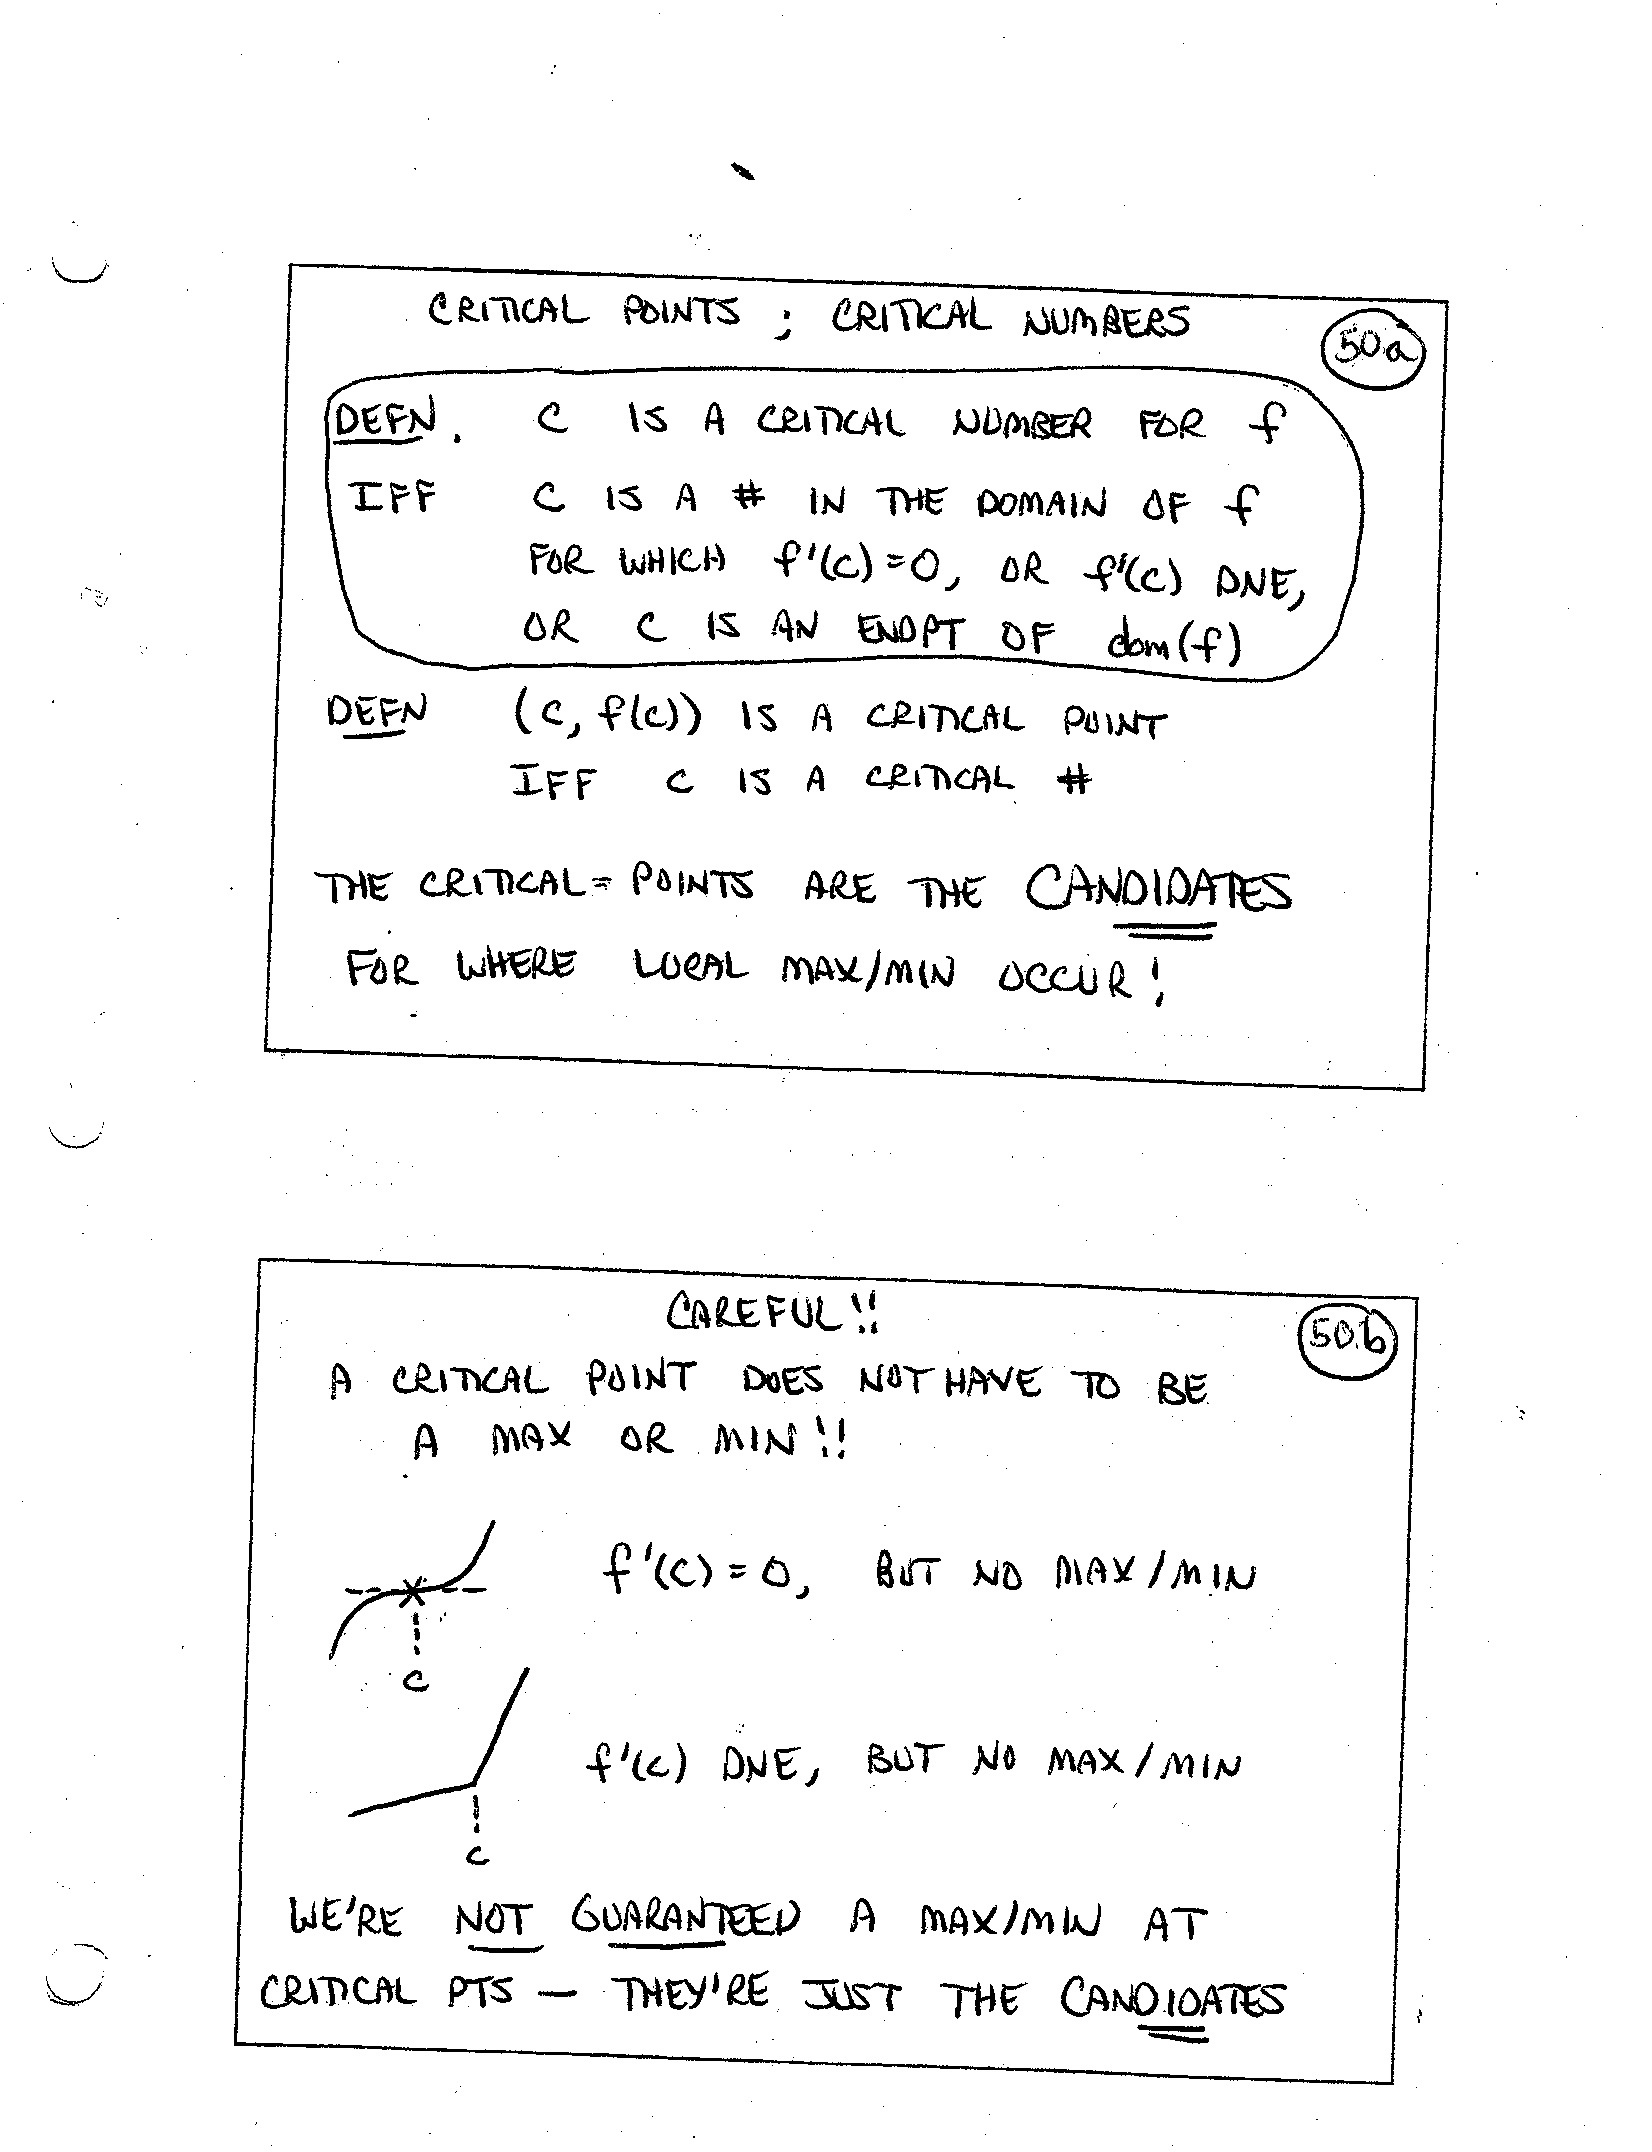 CRITICAL POINTS ; CRITICAL NUMBERS
50a
DEFN. C IS A CRITICAL NUMBER FOR f
IFF C IS A # IN THE DOMAIN OF f
FOR WHICH f'(c)=0, OR f'(c) DNE,
OR C IS AN ENDPT OF dom(f)
DEFN (c, f(c)) IS A CRITICAL POINT
IFF C IS A CRITICAL #
THE CRITICAL= POINTS ARE THE CANDIDATES
FOR WHERE LOCAL MAX/MIN OCCUR!
CAREFUL!!
50b
A CRITICAL POINT DOES NOT HAVE TO BE
A MAX OR MIN!!
f'(c)=0, BUT NO MAX/MIN
C
f'(c) DNE, BUT NO MAX/MIN
C
WE'RE NOT GUARANTEED A MAX/MIN AT
CRITICAL PTS — THEY'RE JUST THE CANDIDATES